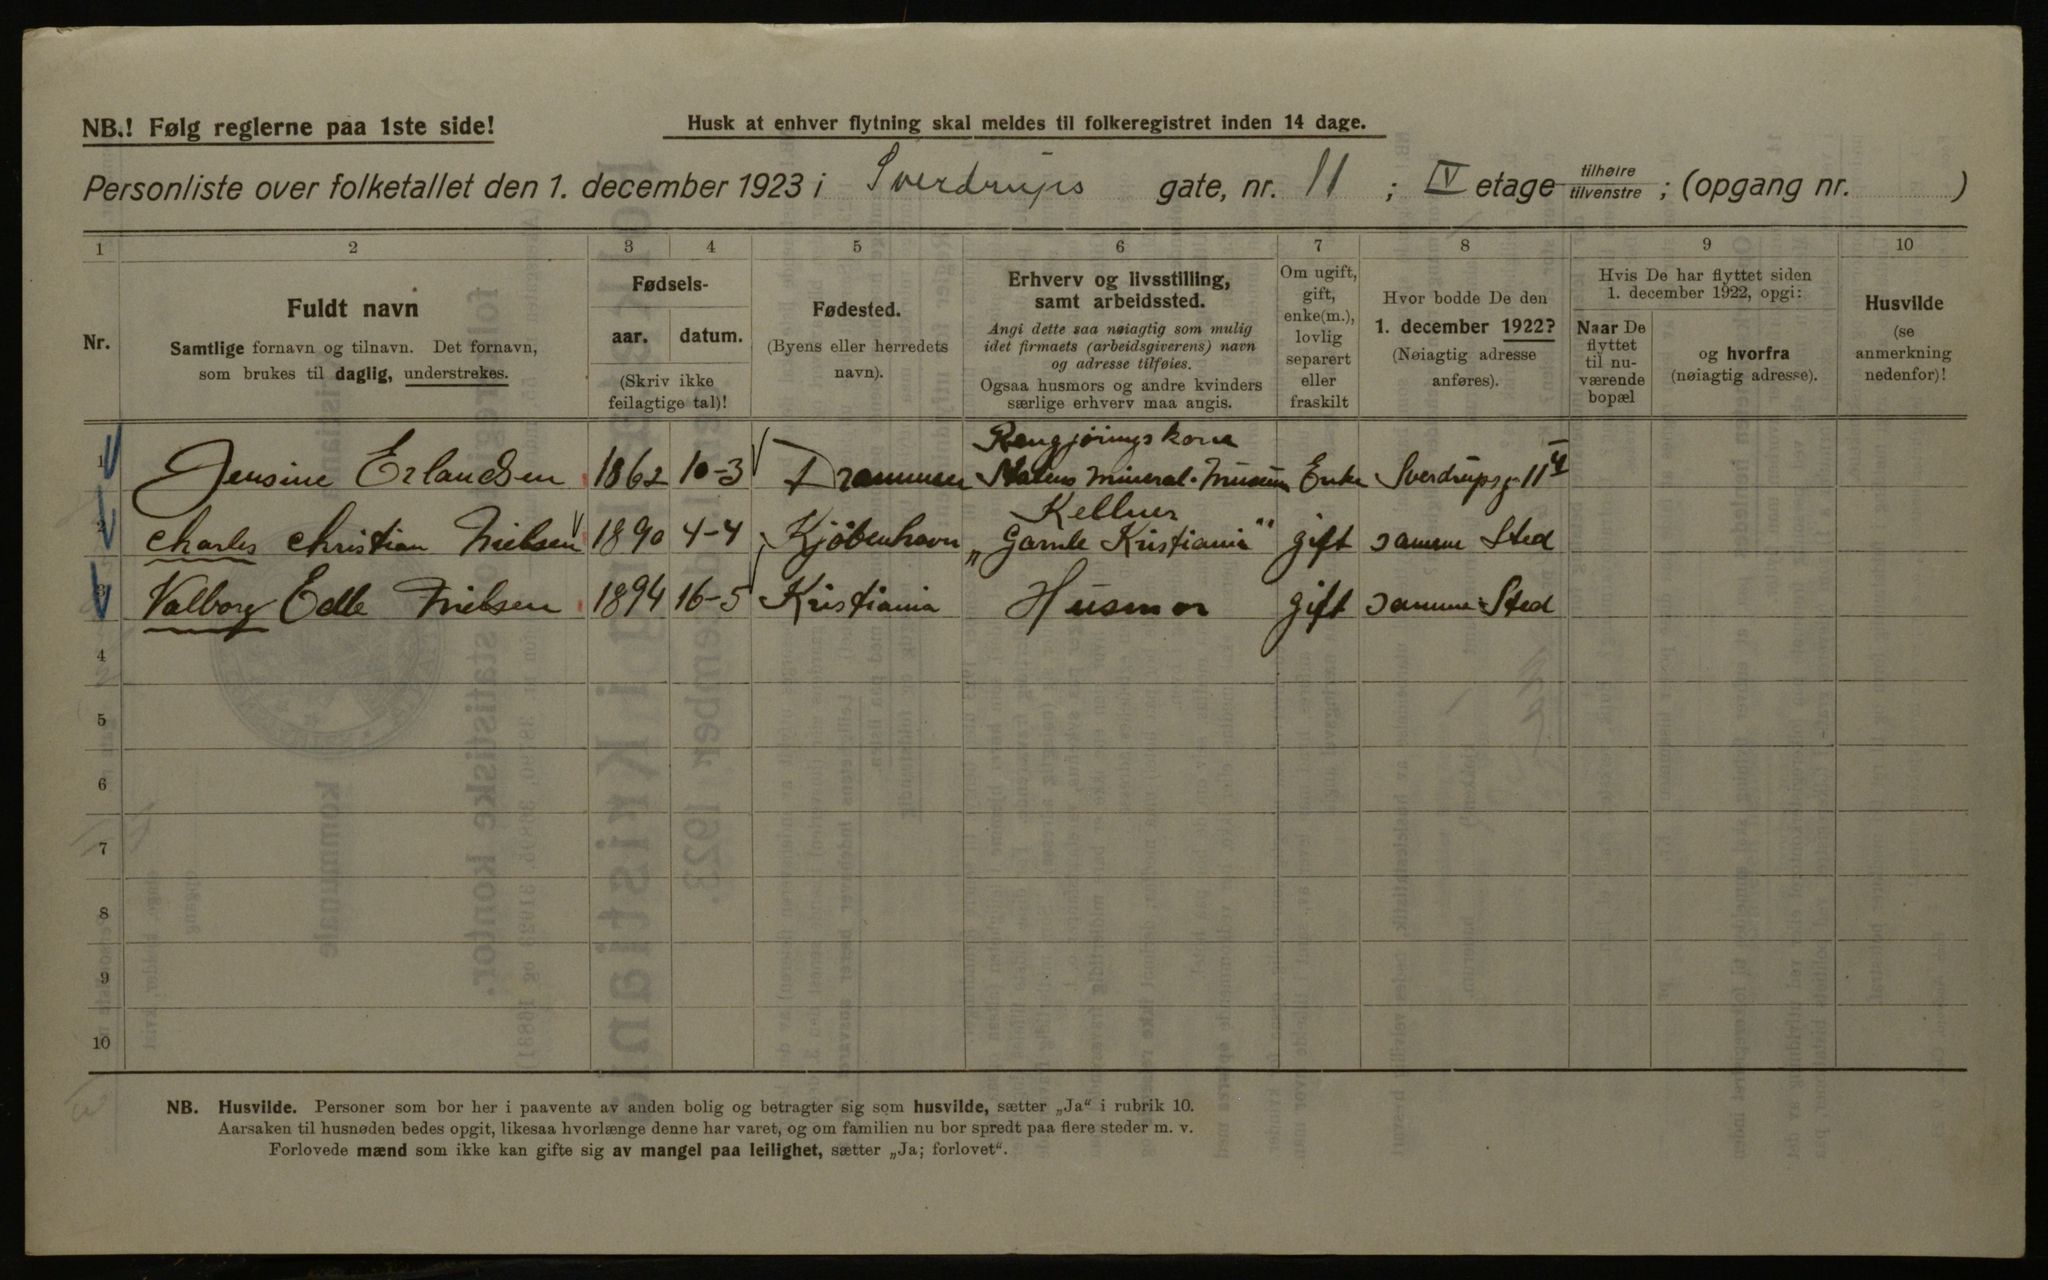 NB.! Følg reglerne paa 1ste side!
Husk at enhver flytning skal meldes til folkeregistret inden 14 dage.
Personliste over folketallet den 1. december 1923 i Sverdrups gate, nr. 11 ; IV etage tilhøire tilvenstre ; (opgang nr. )
1 2 3 4 5 6 7 8 9 10
Nr.
Fuldt navn
Samtlige fornavn og tilnavn. Det fornavn,
som brukes til daglig, understrekes.
Fødsels-
aar. datum.
(Skriv ikke
feilagtige tal)!
Fødested.
(Byens eller herredets
navn).
Erhverv og livsstilling,
samt arbeidssted.
Angi dette saa nøiagtig som mulig
idet firmaets (arbeidsgiverens) navn
og adresse tilføies.
Ogsaa husmors og andre kvinders
særlige erhverv maa angis.
Om ugift,
gift,
enke(m.),
lovlig
separert
eller
fraskilt
Hvor bodde De den
1. december 1922?
(Nøiagtig adresse
anføres).
Hvis De har flyttet siden
1. december 1922, opgi:
Naar De
flyttet
til nu-
værende
bopæl
og hvorfra
(nøiagtig adresse).
Husvilde
(se
anmerkning
nedenfor)!
Rengjøringskone
1 Jensine Erlandsen 1862 10-3 Drammen Statens Mineral-Museum Enke Sverdrupsg 11 4
Kellner
2 Charles Christian Nielsen 1890 4-4 Kjøbenhavn „Gamle Kristiania" gift samme Sted
3 Valborg Edle Nielsen 1894 16-5 Kristiania Husmor gift samme Sted
4
5
6
7
8
9
10
NB. Husvilde. Personer som bor her i paavente av anden bolig og betragter sig som husvilde, sætter „Ja" i rubrik 10.
Aarsaken til husnøden bedes opgit, likesaa hvorlænge denne har varet, og om familien nu bor spredt paa flere steder m. v.
Forlovede mænd som ikke kan gifte sig av mangel paa leilighet, sætter „Ja; forlovet".